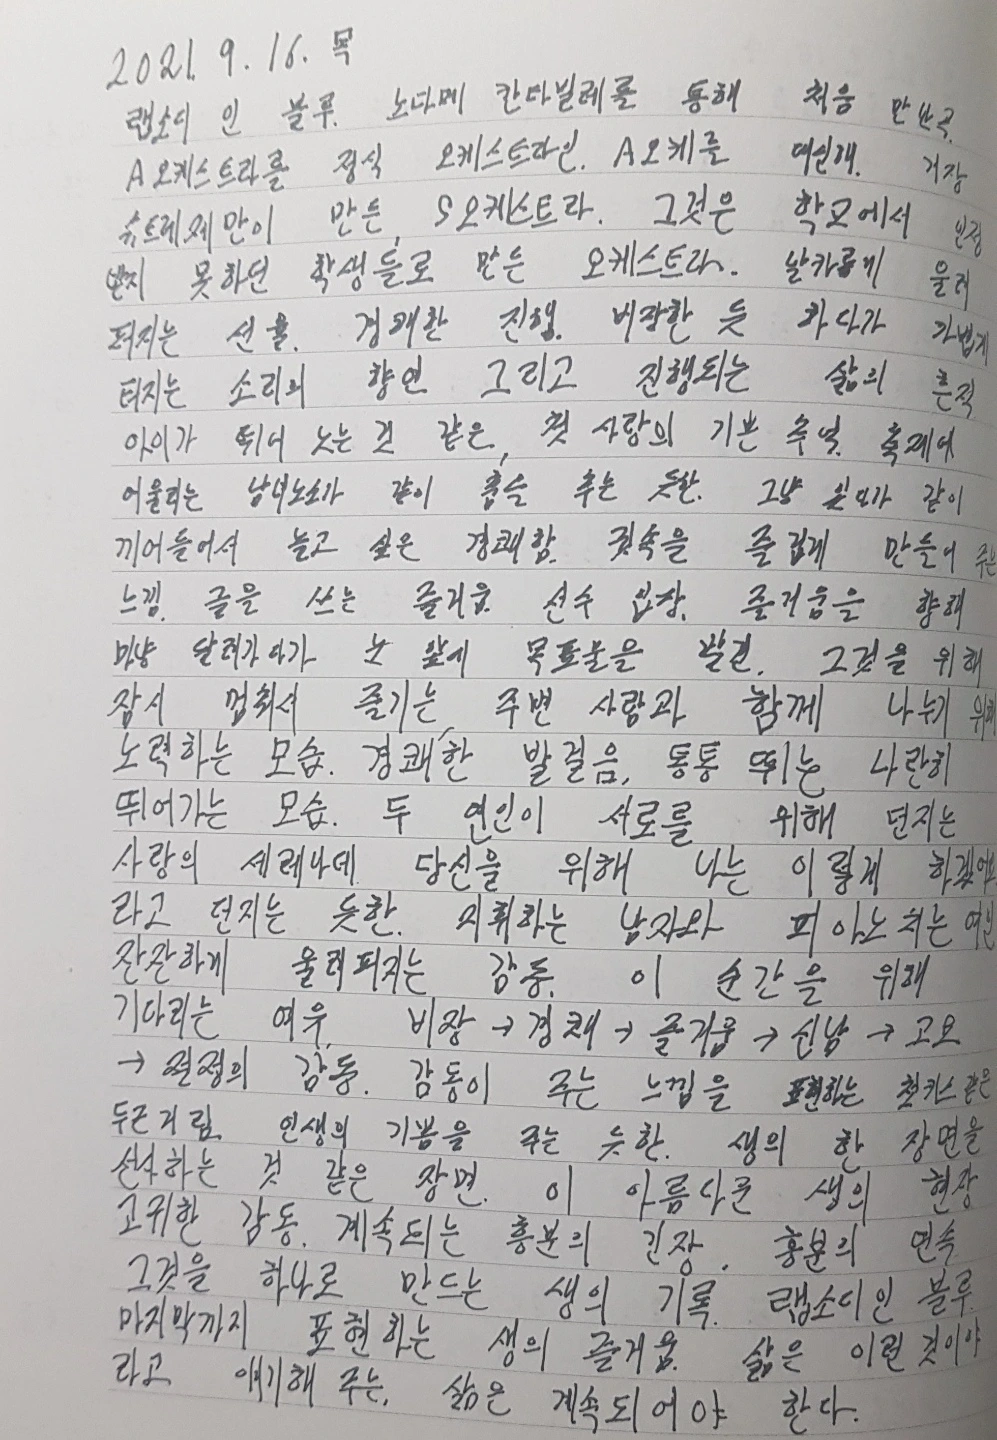 2021. 9. 16. 목
랩소디 인 블루. 노다메 칸타빌레를 통해 처음 만난 곡.
A 오케스트라를 정식 오케스트라인. A오케를 대신해. 거장
슈트레제만이 만든, S오케스트라. 그것은 학교에서 인정
받지 못하던 학생들로 만든 오케스트라. 날카롭게 울려
퍼지는 선율. 경쾌한 진행. 비장한 듯 하다가 가볍게
터지는 소리의 향연 그리고 진행되는 삶의 흔적
아이가 뛰어 노는 것 같은, 첫 사랑의 기쁜 추억. 축제에
어울리는 남녀노소가 같이 춤을 추는 듯한. 그냥 같이
끼어들어서 놀고 싶은 경쾌함. 귓속을 즐겁게 만들어 주는
느낌. 글을 쓰는 즐거움. 선수 입장. 즐거움을 향해
마냥 달려가다가 눈 앞에 목표물을 발견. 그것을 위해
잠시 멈춰서 즐기는, 주변 사람과 함께 나누기 위해
노력하는 모습. 경쾌한 발걸음. 통통 뛰는 나란히
뛰어가는 모습. 두 연인이 서로를 위해 던지는
사랑의 세레나데. 당신을 위해 나는 이렇게 하겠어요
라고 던지는 듯한. 지휘하는 남자와 피아노 치는 여인
잔잔하게 울려퍼지는 감동. 이 순간을 위해
기다리는 여우. 비장 → 경쾌 → 즐거움 → 신남 → 고요
→ 절정의 감동. 감동이 주는 느낌을 표현하는 첫키스 같은
두근거림. 인생의 기쁨을 주는 듯한. 생의 한 장면을
선사하는 것 같은 장면. 이 아름다운 생의 현장
고귀한 감동. 계속되는 흥분의 긴장. 흥분의 연속
그것을 하나로 만드는 생의 기록. 랩소디 인 블루.
마지막까지 표현하는 생의 즐거움. 삶은 이런 것이야
라고 얘기해 주는. 삶은 계속되어야 한다.